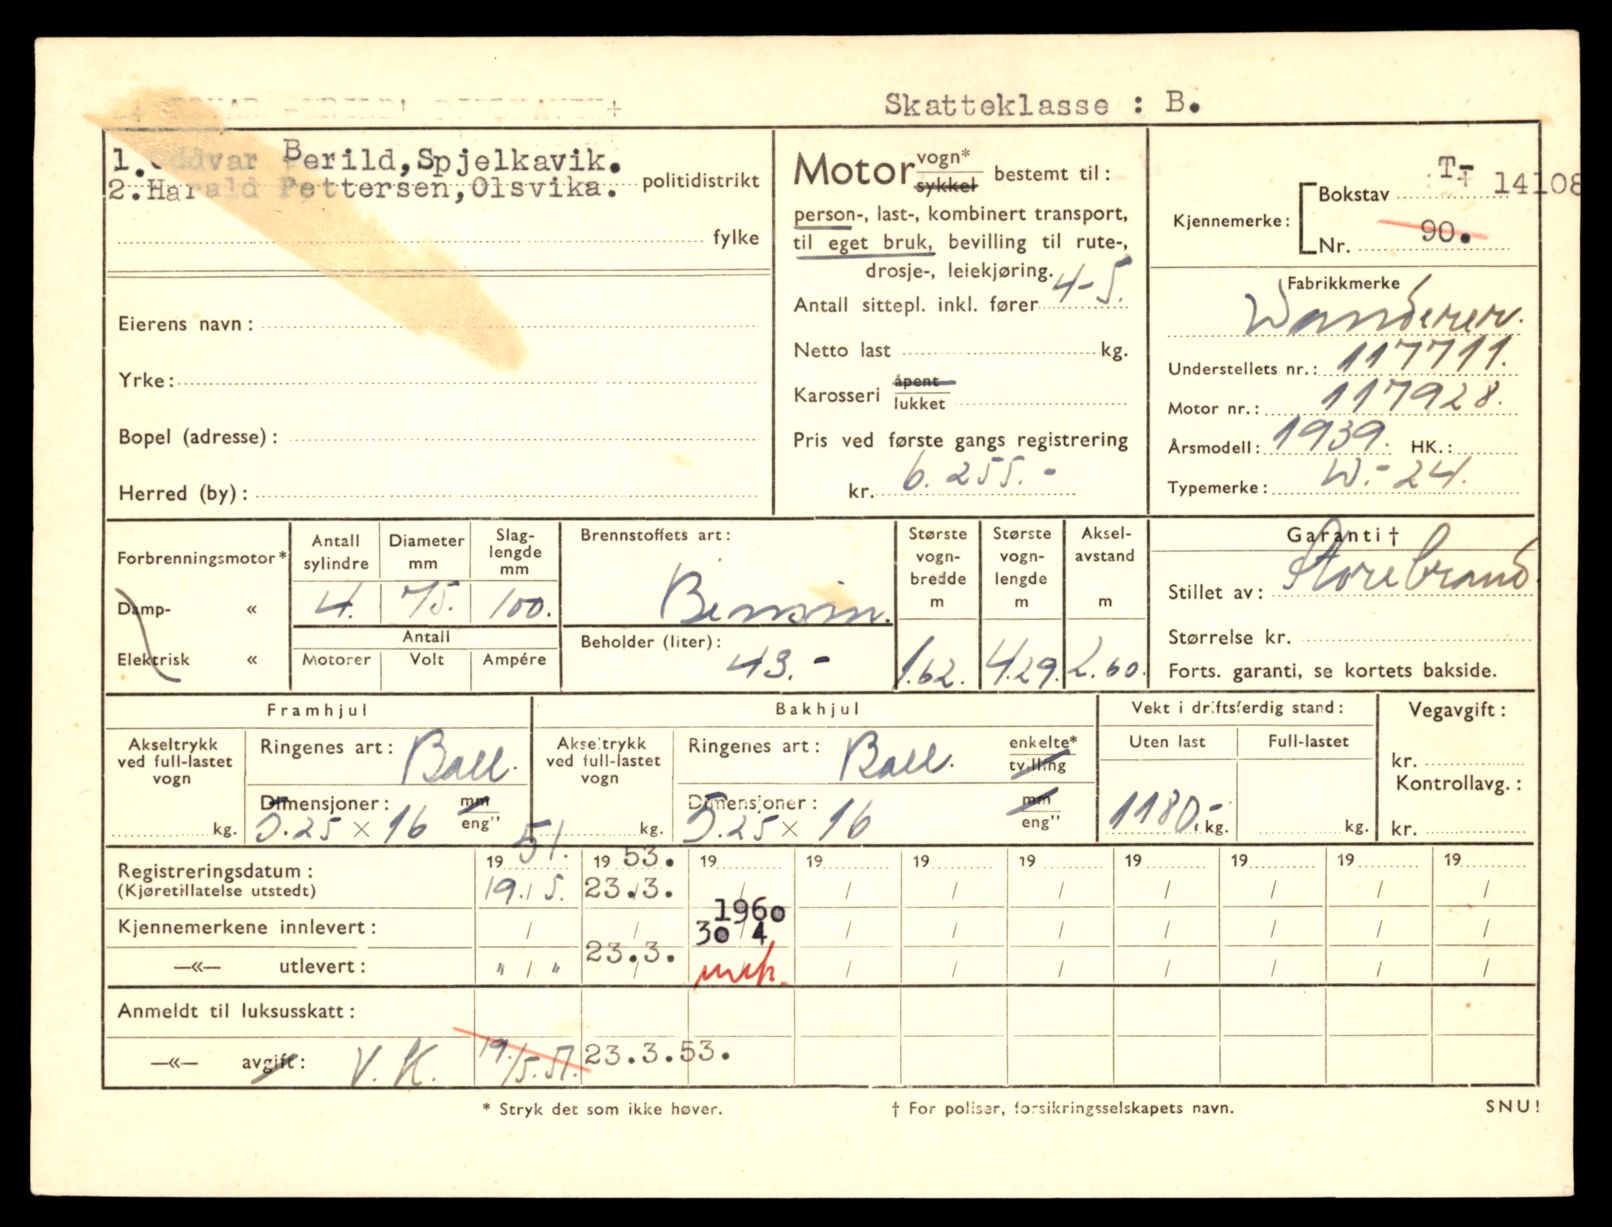 Skatteklasse : B.
1. Oddvar Berild, Spjelkavik.
2. Harald Pettersen, Olsvika. politidistrikt
fylke
Eierens navn :
Yrke :
Bopel (adresse) :
Herred (by) :
Motor vogn* sykkel bestemt til :
person-, last-, kombinert transport,
til eget bruk, bevilling til rute-,
drosje-, leiekjøring.
Antall sittepl. inkl. fører 4-5.
Netto last kg.
Karosseri åpent lukket
Pris ved første gangs registrering
kr. 6.255.-
Kjennemerke : Bokstav T- 14108
Nr. 90.
Fabrikkmerke
Wanderer.
Understellets nr. : 117711.
Motor nr. : 117928.
Årsmodell : 1939. HK. :
Typemerke : W.-24.
Forbrenningsmotor*
Damp- «
Elektrisk «
Antall sylindre 4.
Diameter mm 75.
Slaglengde mm 100.
Antall
Motorer Volt Ampére
Brennstoffets art :
Bensin.
Beholder (liter) :
43.-
Største vognbredde m 1.62.
Største vognlengde m 4.29.
Akselavstand m 2.60.
Garanti †
Stillet av : Storebrand
Størrelse kr.
Forts. garanti, se kortets bakside.
Framhjul
Akseltrykk ved full-lastet vogn
kg.
Ringenes art : Ball.
Dimensjoner : mm eng"
5.25 × 16
Bakhjul
Akseltrykk ved full-lastet vogn
kg.
Ringenes art : Ball. enkelte* tvilling
Dimensjoner : mm eng"
5.25 × 16
Vekt i driftsferdig stand :
Uten last Full-lastet
1180.- kg. kg.
Vegavgift :
kr.
Kontrollavg. :
kr.
19 51. 19 53. 19 19 19 19 19 19 19 19
Registreringsdatum :
(Kjøretillatelse utstedt)
19./5. 23.3. / / / / / / / /
Kjennemerkene innlevert : / / 1960 30 4 / / / / / / /
—«— utlevert : " / " 23.3. / / / / / / /
Anmeldt til luksusskatt :
—«— avgift : V.K. 19./5.51. 23.3.53.
* Stryk det som ikke høver.
† For poliser, forsikringsselskapets navn.
SNU!